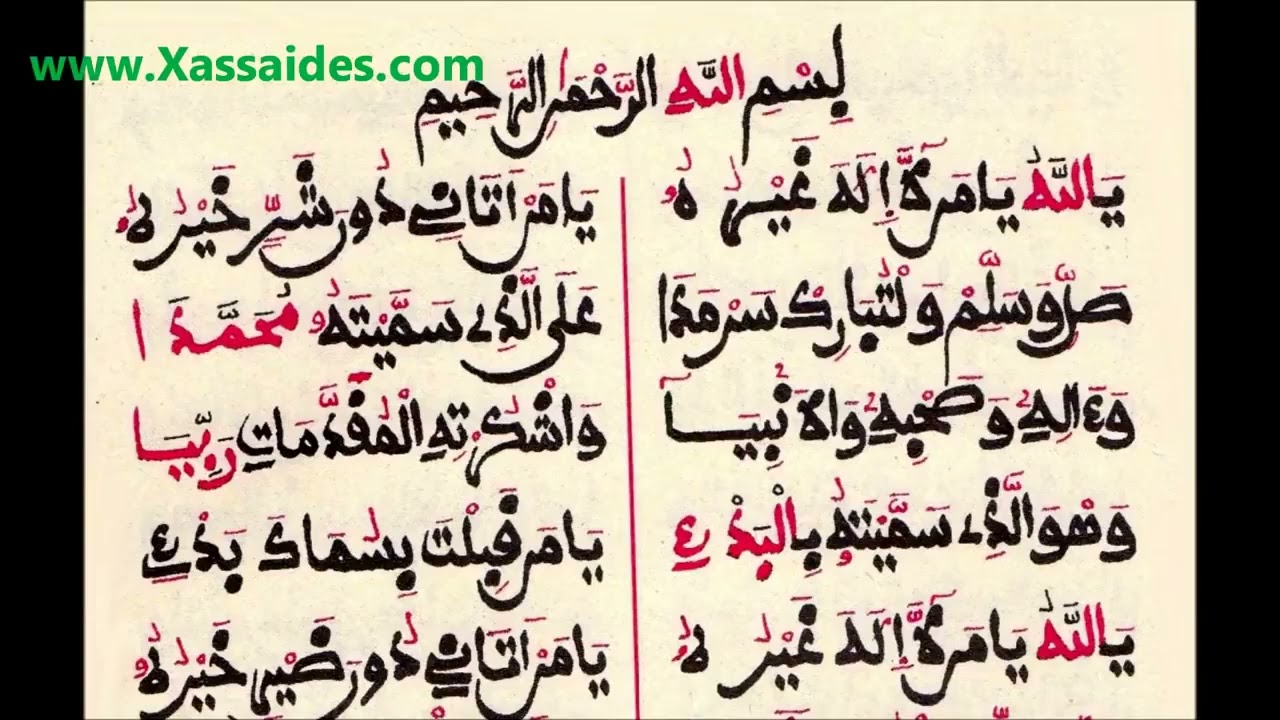 www.Xassaides.com
بِسْمِ اللَّهِ الرَّحْمَٰنِ الرَّحِيمِ
يَا اللَّهُ يَا مَن لَّا إِلَهَ غَيْرُهُ يَا مَنْ أَتَانِي دُونَ شَرٍّ خَيْرُهُ
صَلِّ وَسَلِّمْ وَلْتُبَارِكْ سَرْمَدَا عَلَى الَّذِي سَمَّيْتَهُ مُحَمَّدَا
وَءَالِهِ وَصَحْبِهِ وَالَانْبِيَا وَاشْكُرْ تِهِ الْمُقَدَّمَاتِ رَبِّيَا
وَهْوَ الَّذِي سَمَّيْتَهُ بِالْبَدْءِ يَا مَن قَبِلْتَ بِسُمَاكَ بَدْءِ
يَا اللَّهُ يَا مَن لَّا إِلَهَ غَيْرُهُ يَا مَنْ أَتَانِي دُونَ ضَيْرٍ خَيْرُهُ